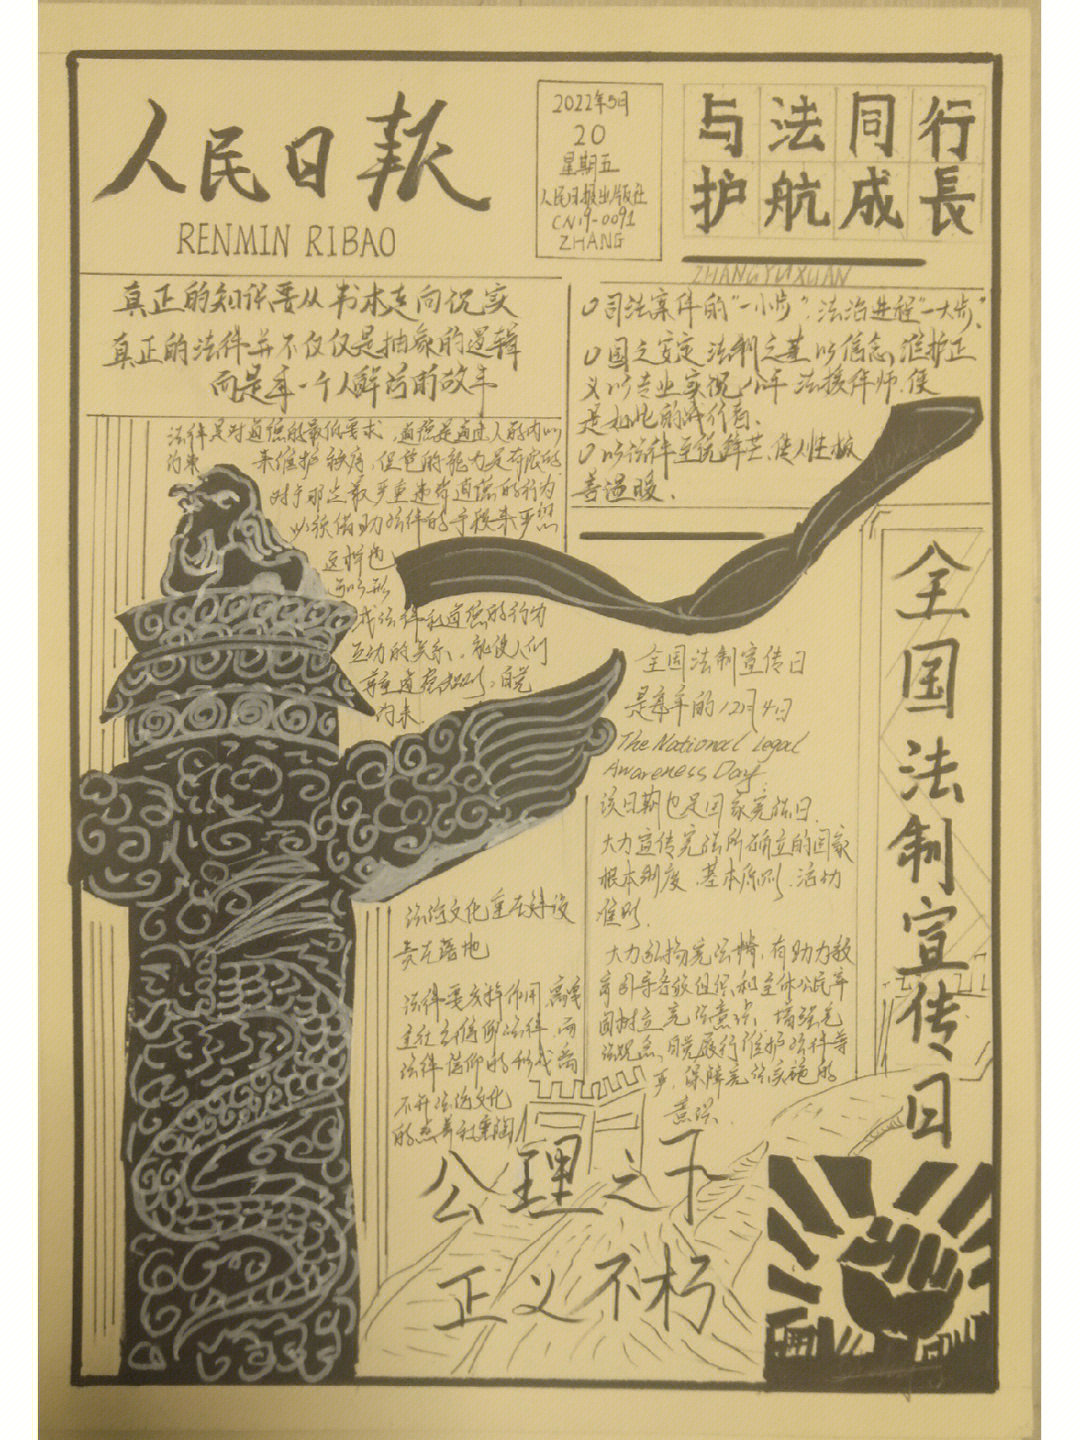 人民日报
RENMIN RIBAO
2022年5月
20
星期五
人民日报出版社
CN19-0091
ZHANG
与法同行
护航成長
ZHANGYUXUAN
真正的知识要从书本走向现实
真正的法律并不仅仅是抽象的逻辑
而是每一个人鲜活的故事
司法案件的“一小步”,法治进程“一大步”.
国之安定 法制之基 以信念 维护正
义 以专业实现 少年 法援律师.使
是如此的
以法律至锐锋芒.使人性极
善温暖.
法律是对道德的最低要求,道德是通过人的内心
约束 来维护秩序,但它的能力是有限的.
对于那些最严重违背道德的行为
必须借助法律的手段来严惩
这样也
可以形
成法律和道德的行为
互动的关系.
尊重道德 自觉
约束.
全国法制宣传日
是每年的12月4日
The National Legal
Awareness Day
该日期也是国家宪法日.
大力宣传宪法所确立的国家
根本制度.基本原则.活动
准则.
大力弘扬宪法精 有助力教
育引导各级组织和全体公民牢
固树立宪法意识 增强宪
法观念.自觉履行维护法律尊
严.保障宪法实施的
意识.
法治文化重在建设
贵在落地
法律要发挥作用 需要
全社会信仰法律.而
法律信仰的形成离
不开法治文化
的滋养和熏陶
公理之下
正义不朽
全国法制宣传日